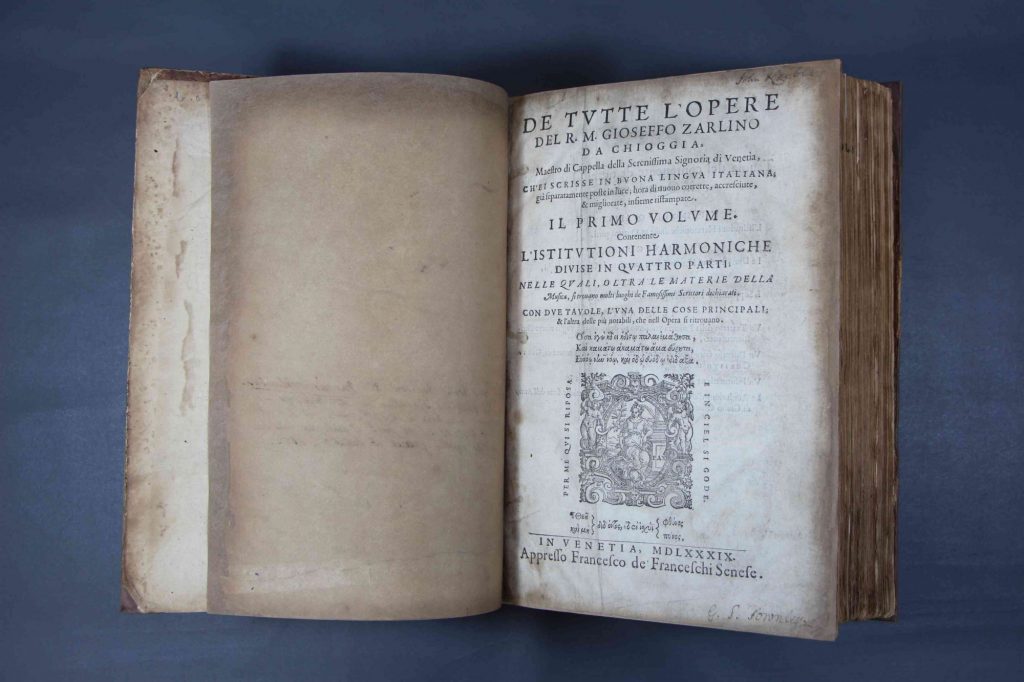 John
DE TVTTE L'OPERE
DEL R. M. GIOSEFFO ZARLINO
DA CHIOGGIA,
Maestro di Cappella della Serenissima Signoria di Venetia,
CH'EI SCRISSE IN BVONA LINGVA ITALIANA;
già separatamente poste in luce; hora di nuouo corrette, accresciute,
& migliorate, insieme ristampate.
IL PRIMO VOLVME.
Contenente
L'ISTITVTIONI HARMONICHE
DIVISE IN QVATTRO PARTI:
NELLE QVALI, OLTRA LE MATERIE DELLA
Musica, si trouano molti luoghi de Famosissimi Scrittori dechiarati.
CON DVE TAVOLE, L'VNA DELLE COSE PRINCIPALI;
& l'altra delle più notabili, che nell'Opera si ritrouano.
PER ME QVI SI RIPOSA,
E IN CIEL SI GODE.
PAX
IN VENETIA, MDLXXXIX.
Appresso Francesco de' Franceschi Senese.
G. S. Townley